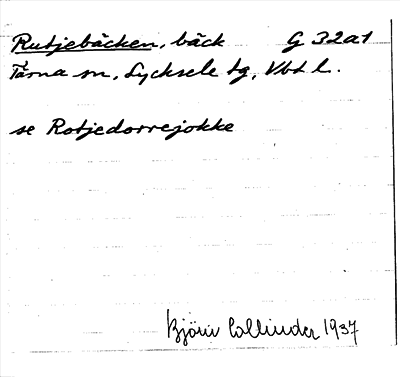 Rutjebäcken, bäck G 32a1
Tärna sn, Lycksele tg, Vbt l.
se Rotjedorrejokke
Björn Collinder 1937